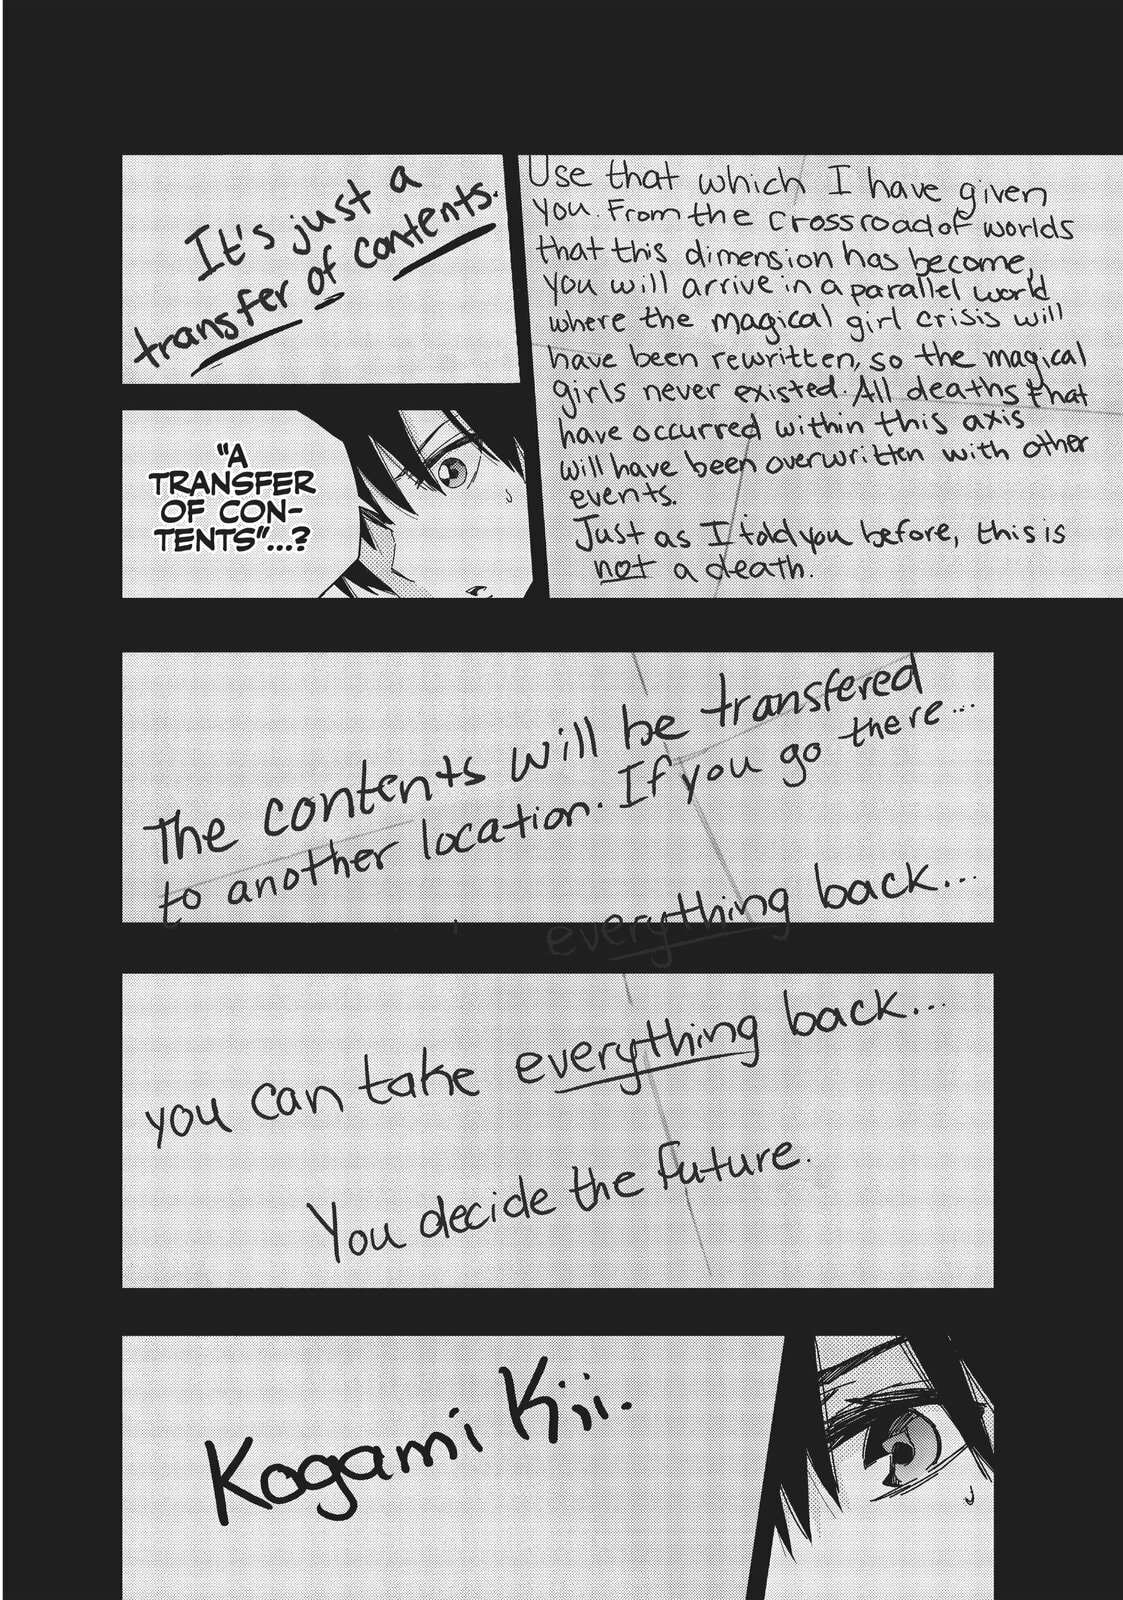 Use that which I have given
you. From the crossroad of worlds
that this dimension has become,
you will arrive in a parallel world
where the magical girl crisis will
have been rewritten, so the magical
girls never existed. All deaths that
have occurred within this axis
will have been overwritten with other
events.
Just as I told you before, this is
not a death.
It's just a
transfer of contents.
"A
TRANSFER
OF CON-
TENTS"...?
The contents will be transfered
to another location. If you go there...
everything back...
you can take everything back...
You decide the future.
Kogami Kii.